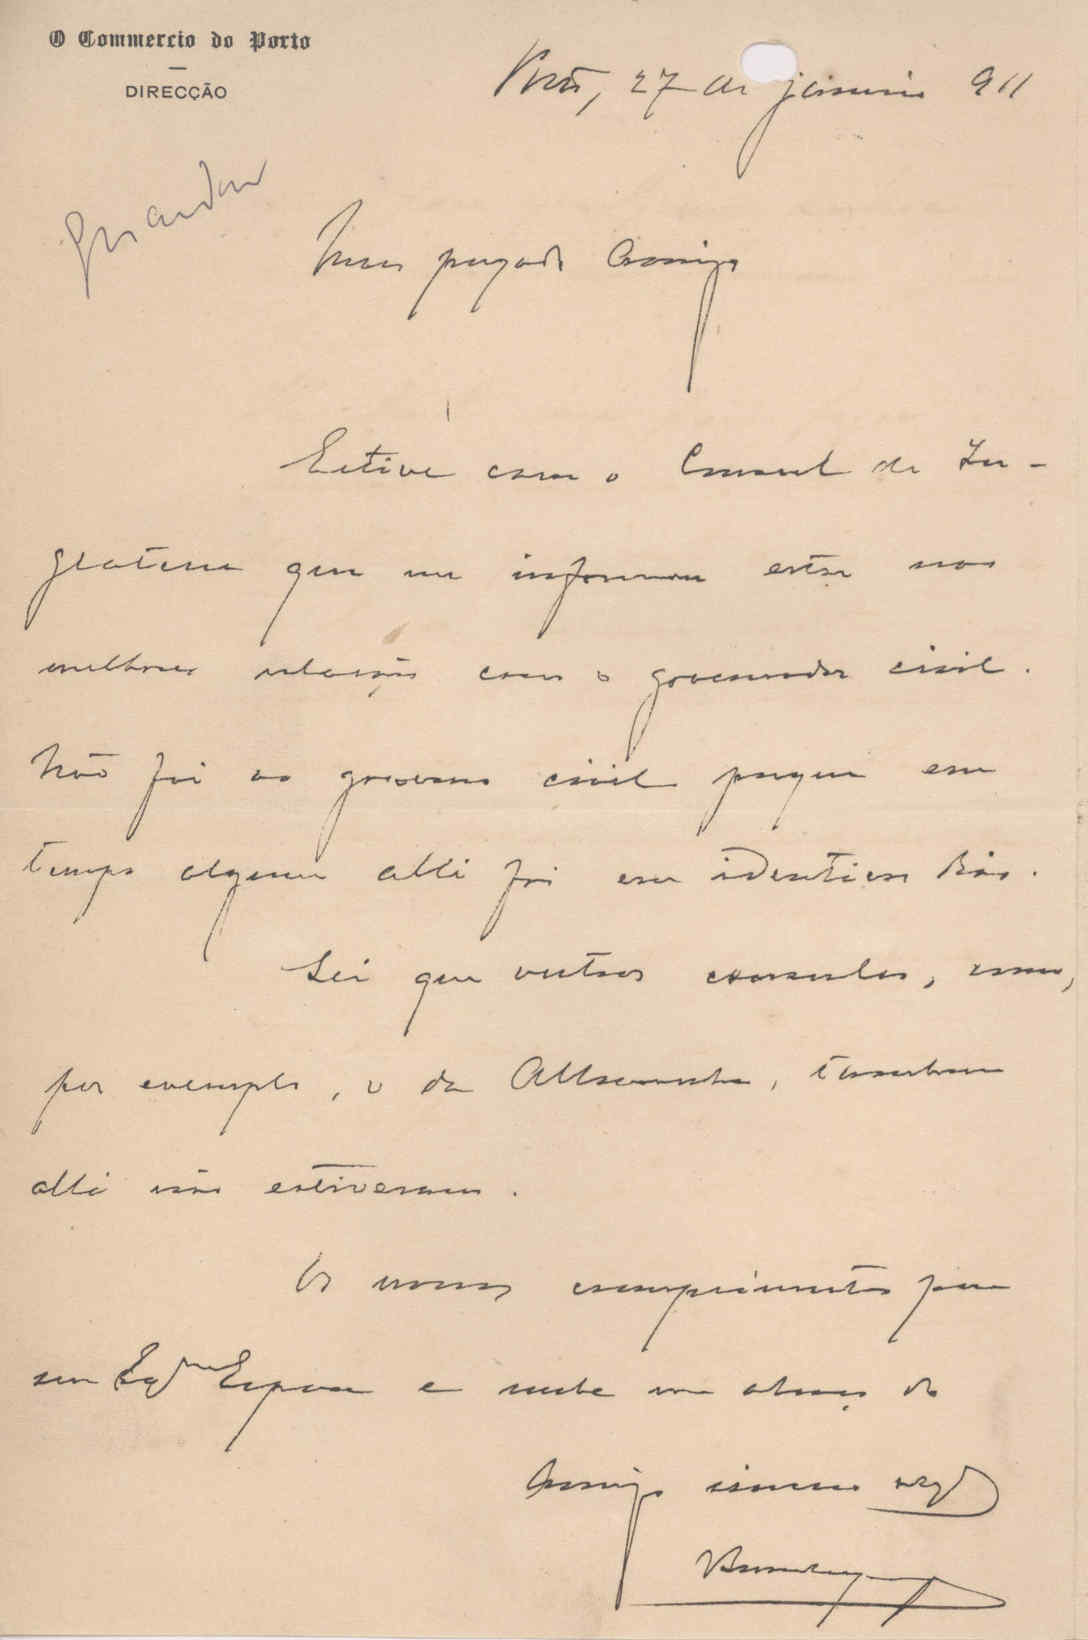 O Commercio do Porto
DIRECÇÃO
Porto, 27 de janeiro 911
Guardar
Meu prezado Amigo
Estive com o Consul de In-
glaterra que me informou estar nas
melhores relações com o governador civil.
Não foi ao governo civil porque em
tempo algum alli foi em identicos dias.
Sei que outros consules, como,
por exemplo, o da Allemanha, tambem
alli não estiveram.
Os nossos comprimentos para
sua Exma Esposa e receba um abraço do
Amigo sincero obgdo